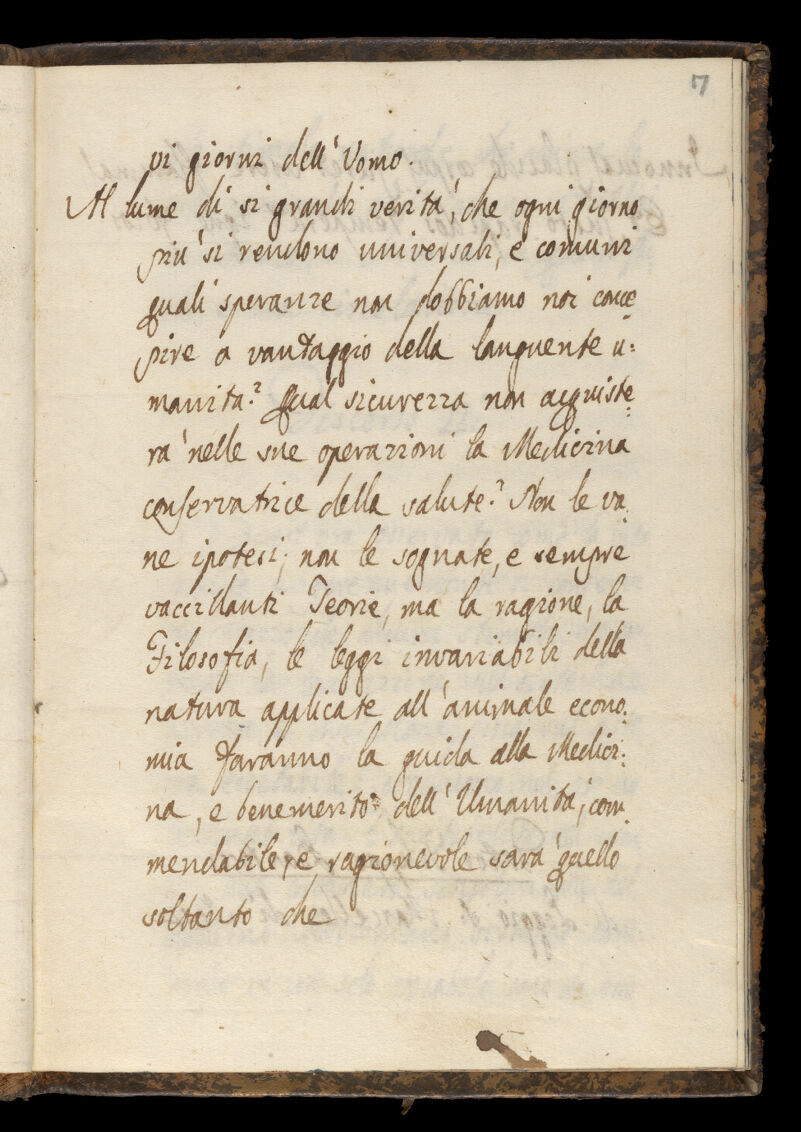 7
vi giorni dell'Uomo.
Al lume di si grandi verità, che ogni giorno
più si rendono universali, e comuni
quali speranze non dobbiamo noi conce
pire a vantaggio della languente u:
manità? Qual sicurezza non acquiste:
rà nelle sue operazioni la Medicina
conservatrice della salute? Non le va:
ne ipotesi, non le sognate, e sempre
vaccillanti Teorie, ma la ragione, la
Filosofia, le leggi invariabili della
natura applicate all'animale econo:
mia faranno la guida alla Medici:
na, e benemerito dell'Umanità, com:
mendabile, e ragionevole sarà quello
soltanto che